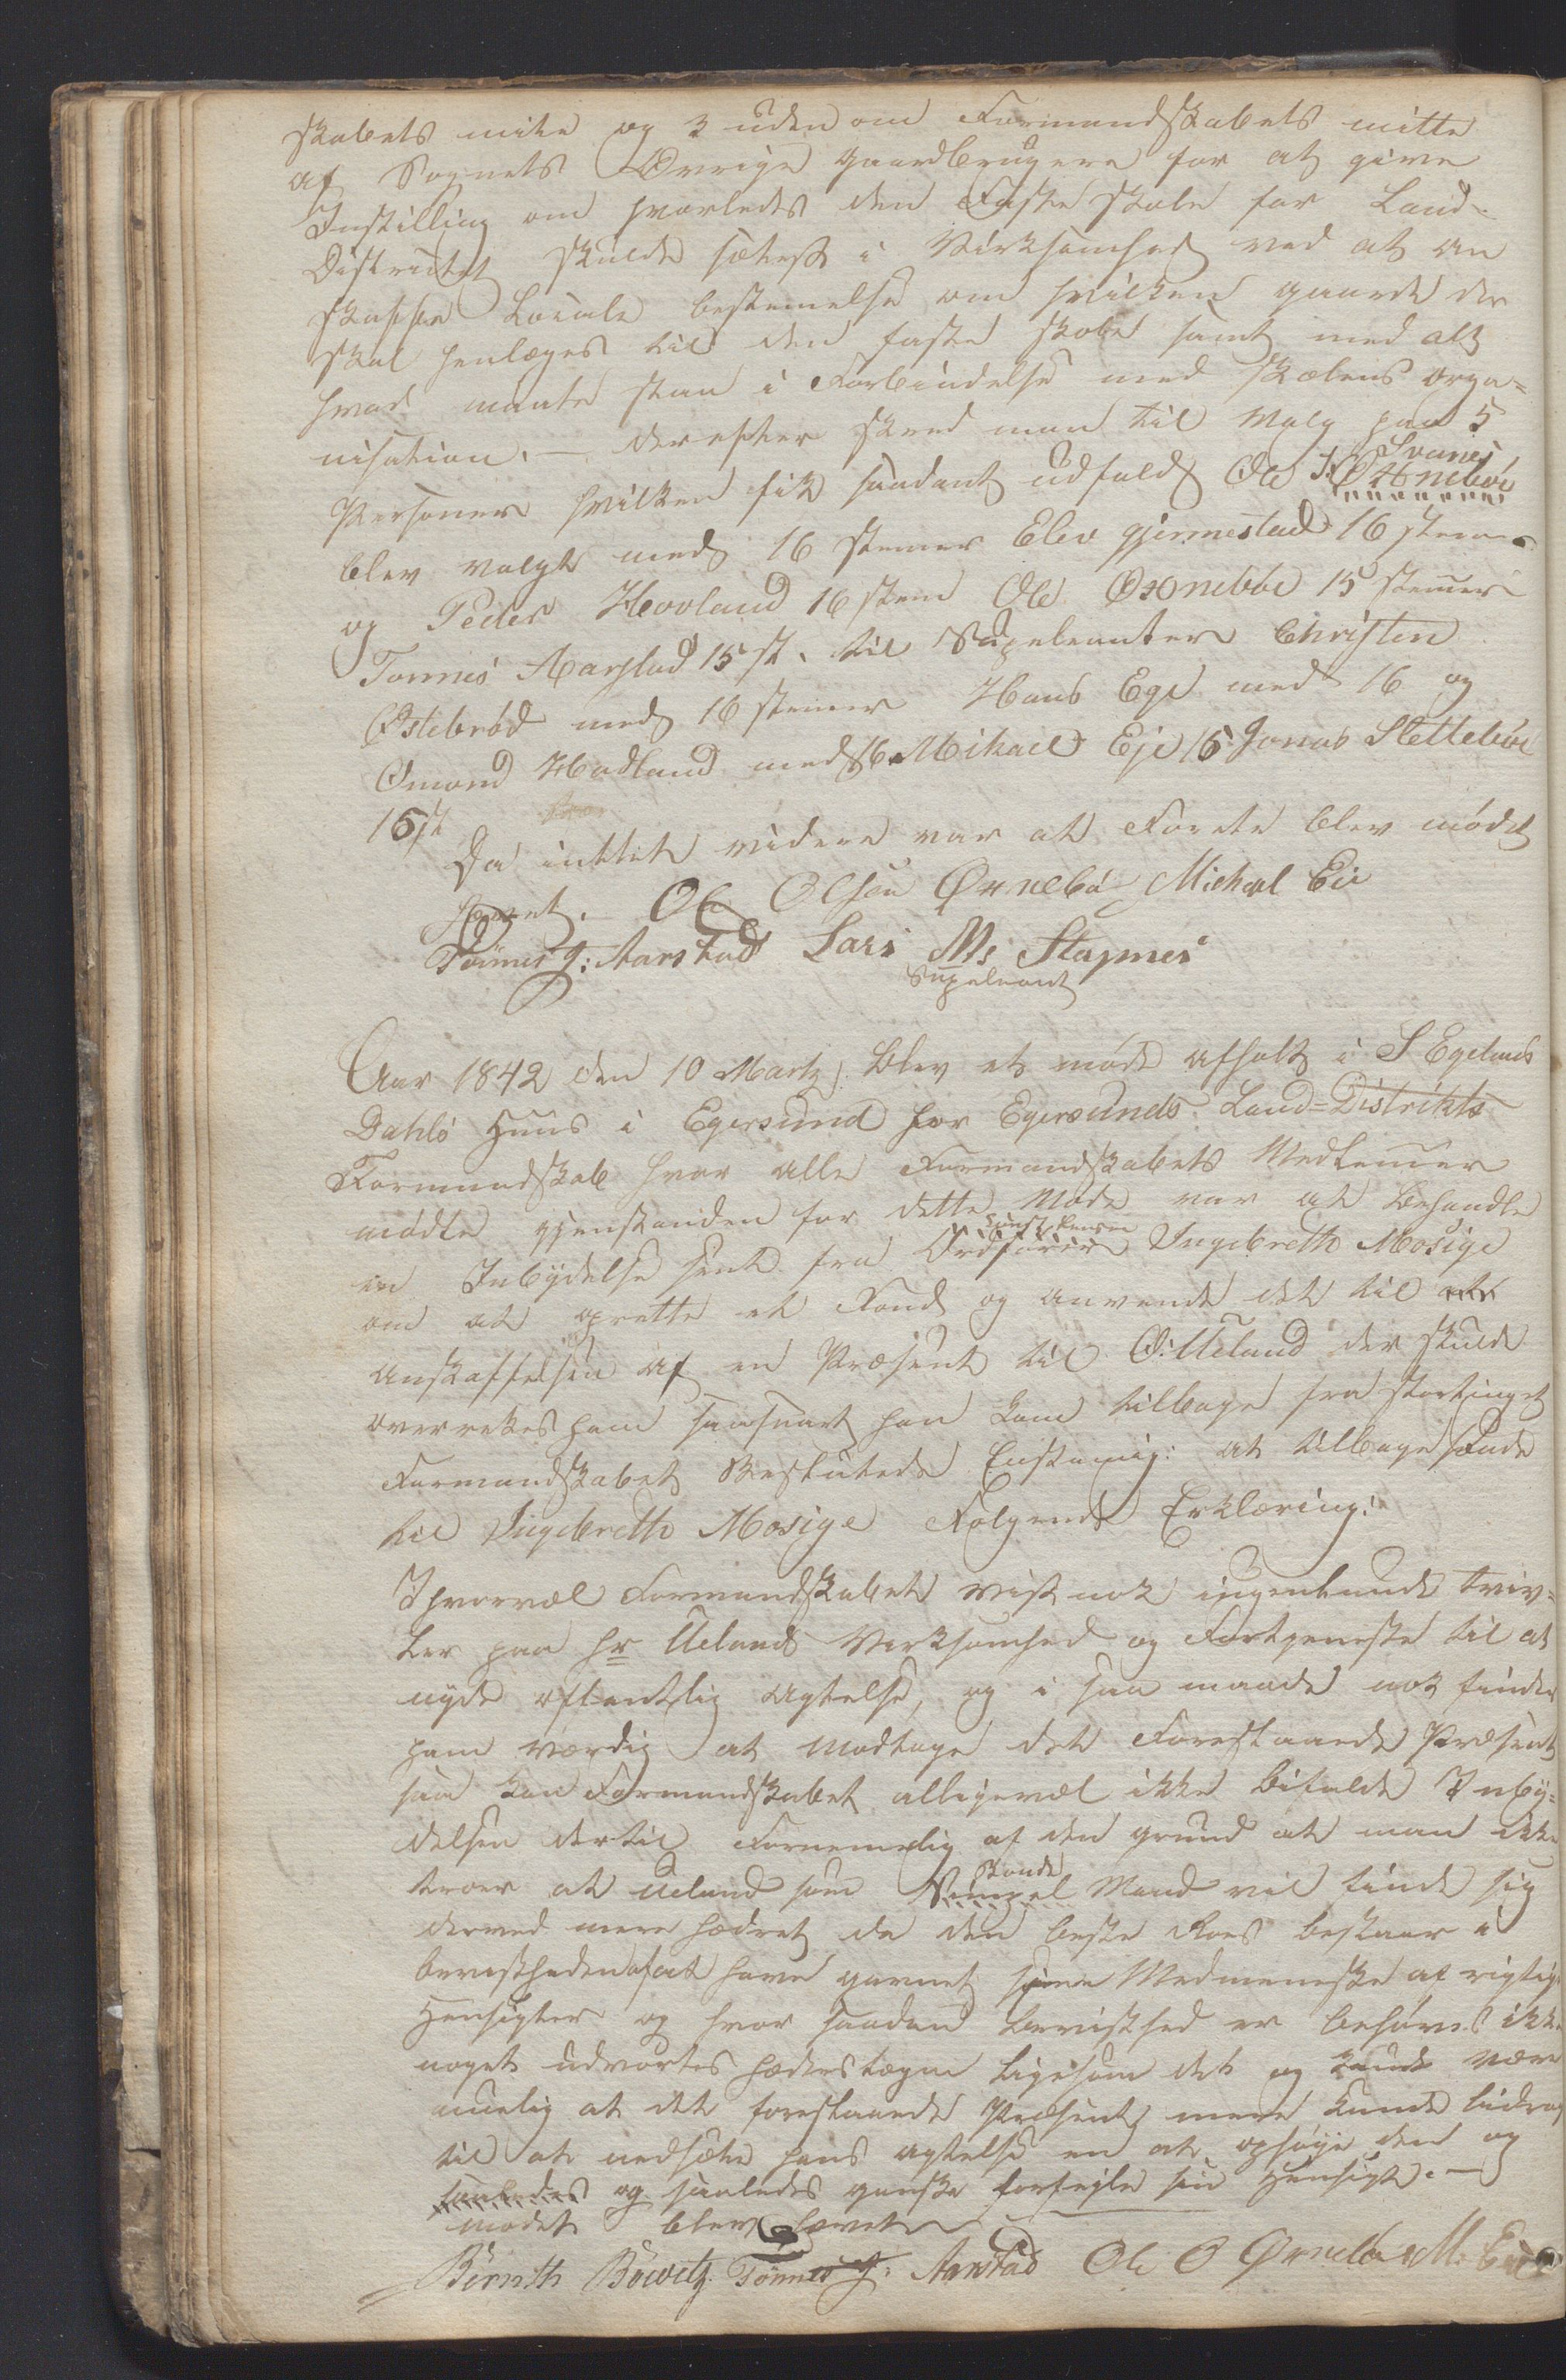 skabets mite og 3 uden om Formandskabets mitte
af Sognets Øvrige gaardbrugere for at give
Instilling om hvorledes den Faste skole for Land-
Districtet skulde sættest i Virksomhed ved at an
skaffe Locale bestemelse om hvilken gaarde der
skal henlæges til den faste skole samt med alt
hvad maate staa i Forbindelse med skolens orga-
nisation. — derefter skred man til Valg paa 5
Personer hvilken fik saadant udfald Ole Svanes
blev valgt med 16 stemer Elev gjermestad 16 stem
og Peder Hovland 16 stem Ole Ørnebøe 15 stemer
Tønnes Aarstad 15 st. til Supeleanter Christen
Østebrød med 16 stemer Hans Ege med 16 og
Omond Hadland med 16 Mikael Eje 16 Jonas Slettebøe
16 st
Da inttet videre var at Forete blev mødet
hævet. Ole Olsen Ørnebø Michael Eie
Tønnes J: Aarstad Lars Ms Stapnes
Supeleant
Aar 1842 den 10 Martz blev et møde afholt i S Egelands
Dahls Huus i Egersund for Egersunds Land-Distrikts
Formandskab hvor alle Formandskabets Medlemer
mødte gjenstanden for dette Møde var at behandle
en Inbydelse sent fra Ordfører Ingebreth Mosige
om at oprette et Fond og anvende det til at
anskaffelsen af en Præsent til O: Ueland der skulde
overrekes ham saasnart han kom tilbage fra stortinget
Formandskabet Beslutede Enstemig: at tilbage sende
til Ingebreth Mosige Følgende Erklæring:
Ihvorvæl Formandskabet vist nok ingenlunde tviv-
ler paa Hr Uelands Virksomhed og Fortjeneste til at
nyde offentlig agtelse, og i saa maade nok finder
ham værdig at modtage det Forestaaende Præsent
saa kan Formandskabet alligevæl ikke bifalde Inby-
delsen dertil Fornemelig af den grund at man ikke
troer at Ueland som Bonde Mand vil finde sig
derved mere hædret da den beste Roes bestaar i
bevistheden af at have gavnet sine Medmeneske af rigtige
Hensigter og hvor saadan bevisthed er behøves ikke
noget udvortes hæderstegn ligesom det og kunde være
muelig at det forestaaende Præsent mere kunde bidrag
til at nedsætte hans agtelse en at ophøije den og
saaledes og saaledes ganske forfejle sin Hensigt. —
Mødet blev hævet
Bernth Bowitz Tønnes J. Aarstad Ole O Ørnebø M. Eie